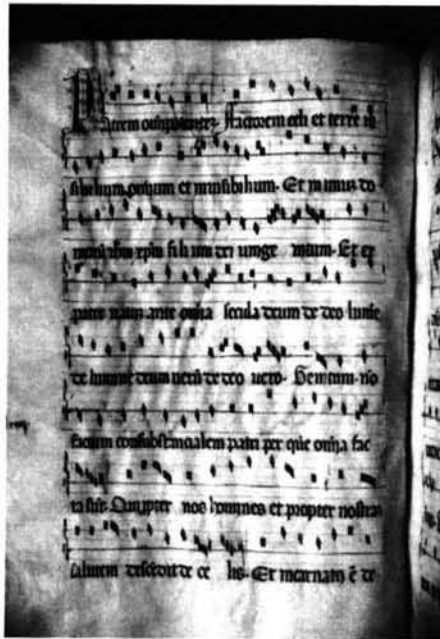 Patrem omnipotentez. factorem celi et terre ui
sibilium omnium et inuisibilium. Et in unuz do
filium dei unige nitum. Et ex
patre natum ante omnia secula deum de deo lumē
de lumine deum uerū de deo uero. Genitum. nō
factum consubstancialem patri per quē omnia fac
ta sūt. Qui propter nos homines et propter nostraz
salutem descēdit de ce lis. Et incarnatꝰ ē de